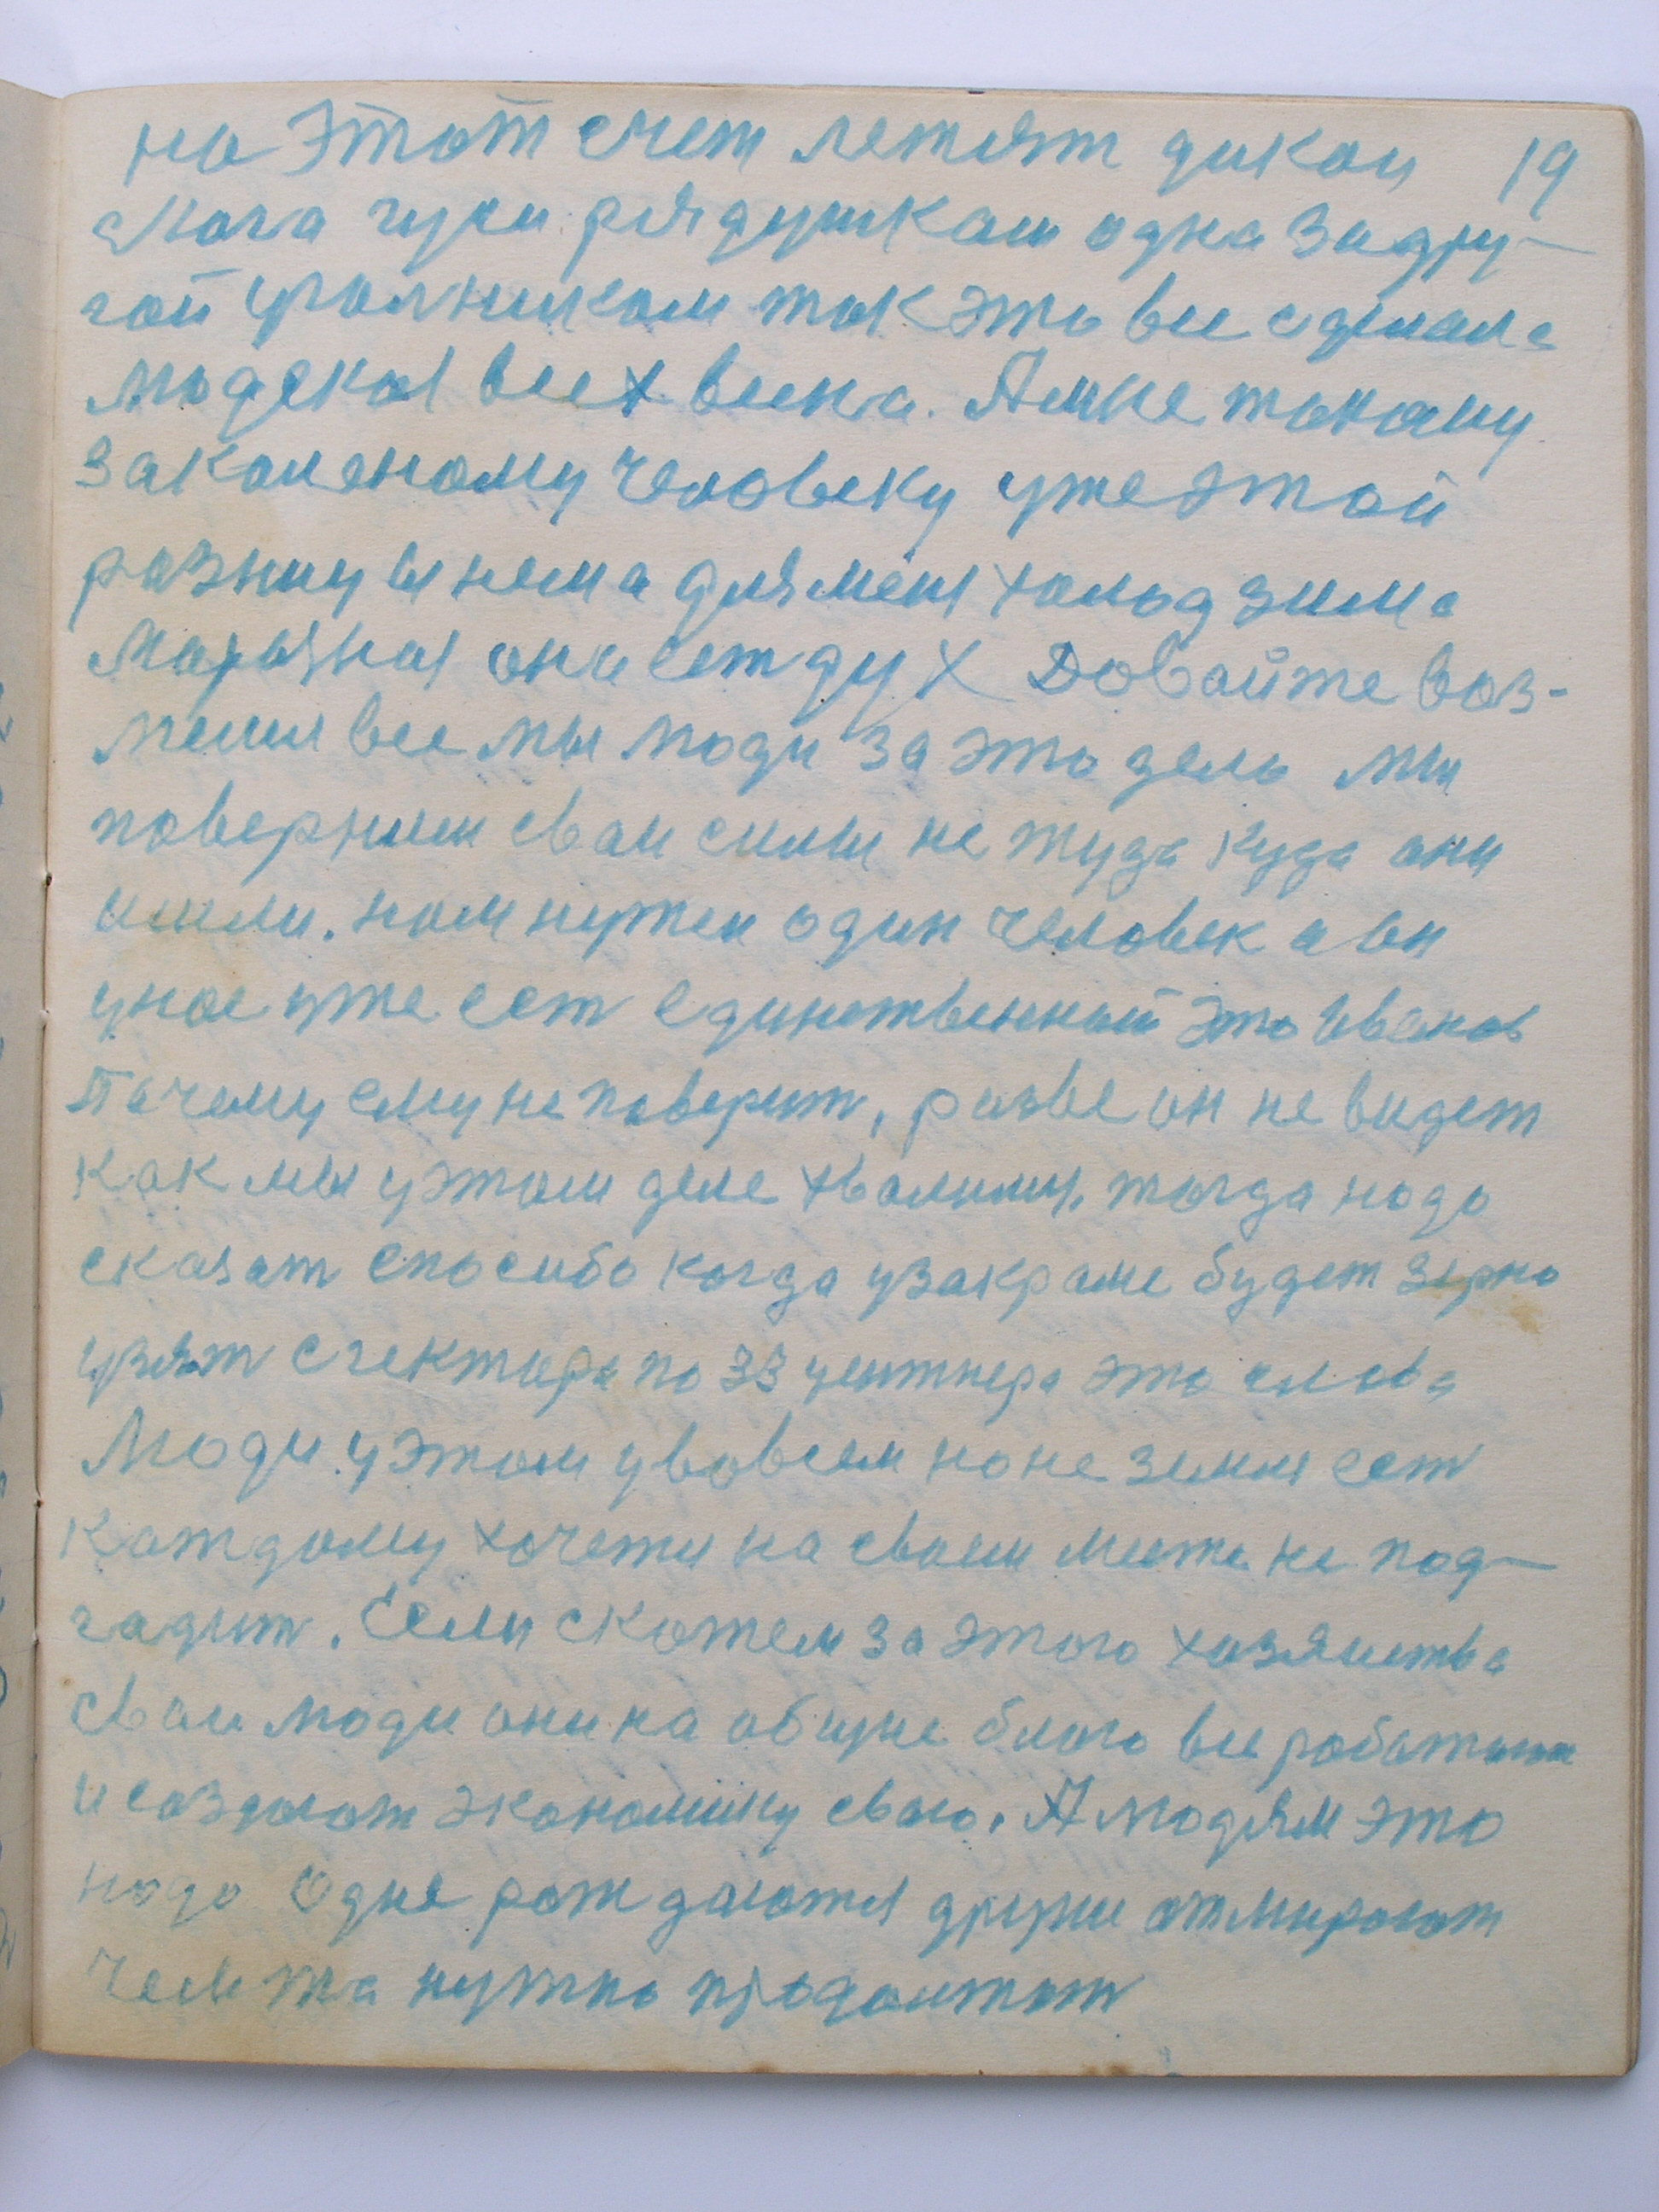 на этот счет летят дикои 19
мога гуси рядушкам одна задру-
гой угольником так это все сделала
людская всех вина. А мне такому
закаленому человеку уже этой
разницы нема для меня холод зима
марозная она ест дух Довайте воз-
мемся все мы люди за это дело мы
повернем сваи силы не туда куда они
ишли. нам нужен один человек а он
у нас уже ест единственный это Иванов
Пачему ему не поверит, разве он не видет
как мы у этом деле хвалимся, тогда надо
сказат спосибо когда узакраме будет зерно
узят с гектара по 33 центнера это слова
Люди у этом у вовсем но не земля ест
каждому хочется на своем месте не под-
гадит. Если скажем за этого хазяиства
сваи люди они на общие благо все работают
и создают экономику сваю. А людям это
надо одне рождаются други отмирают
чем та нужно продолжат